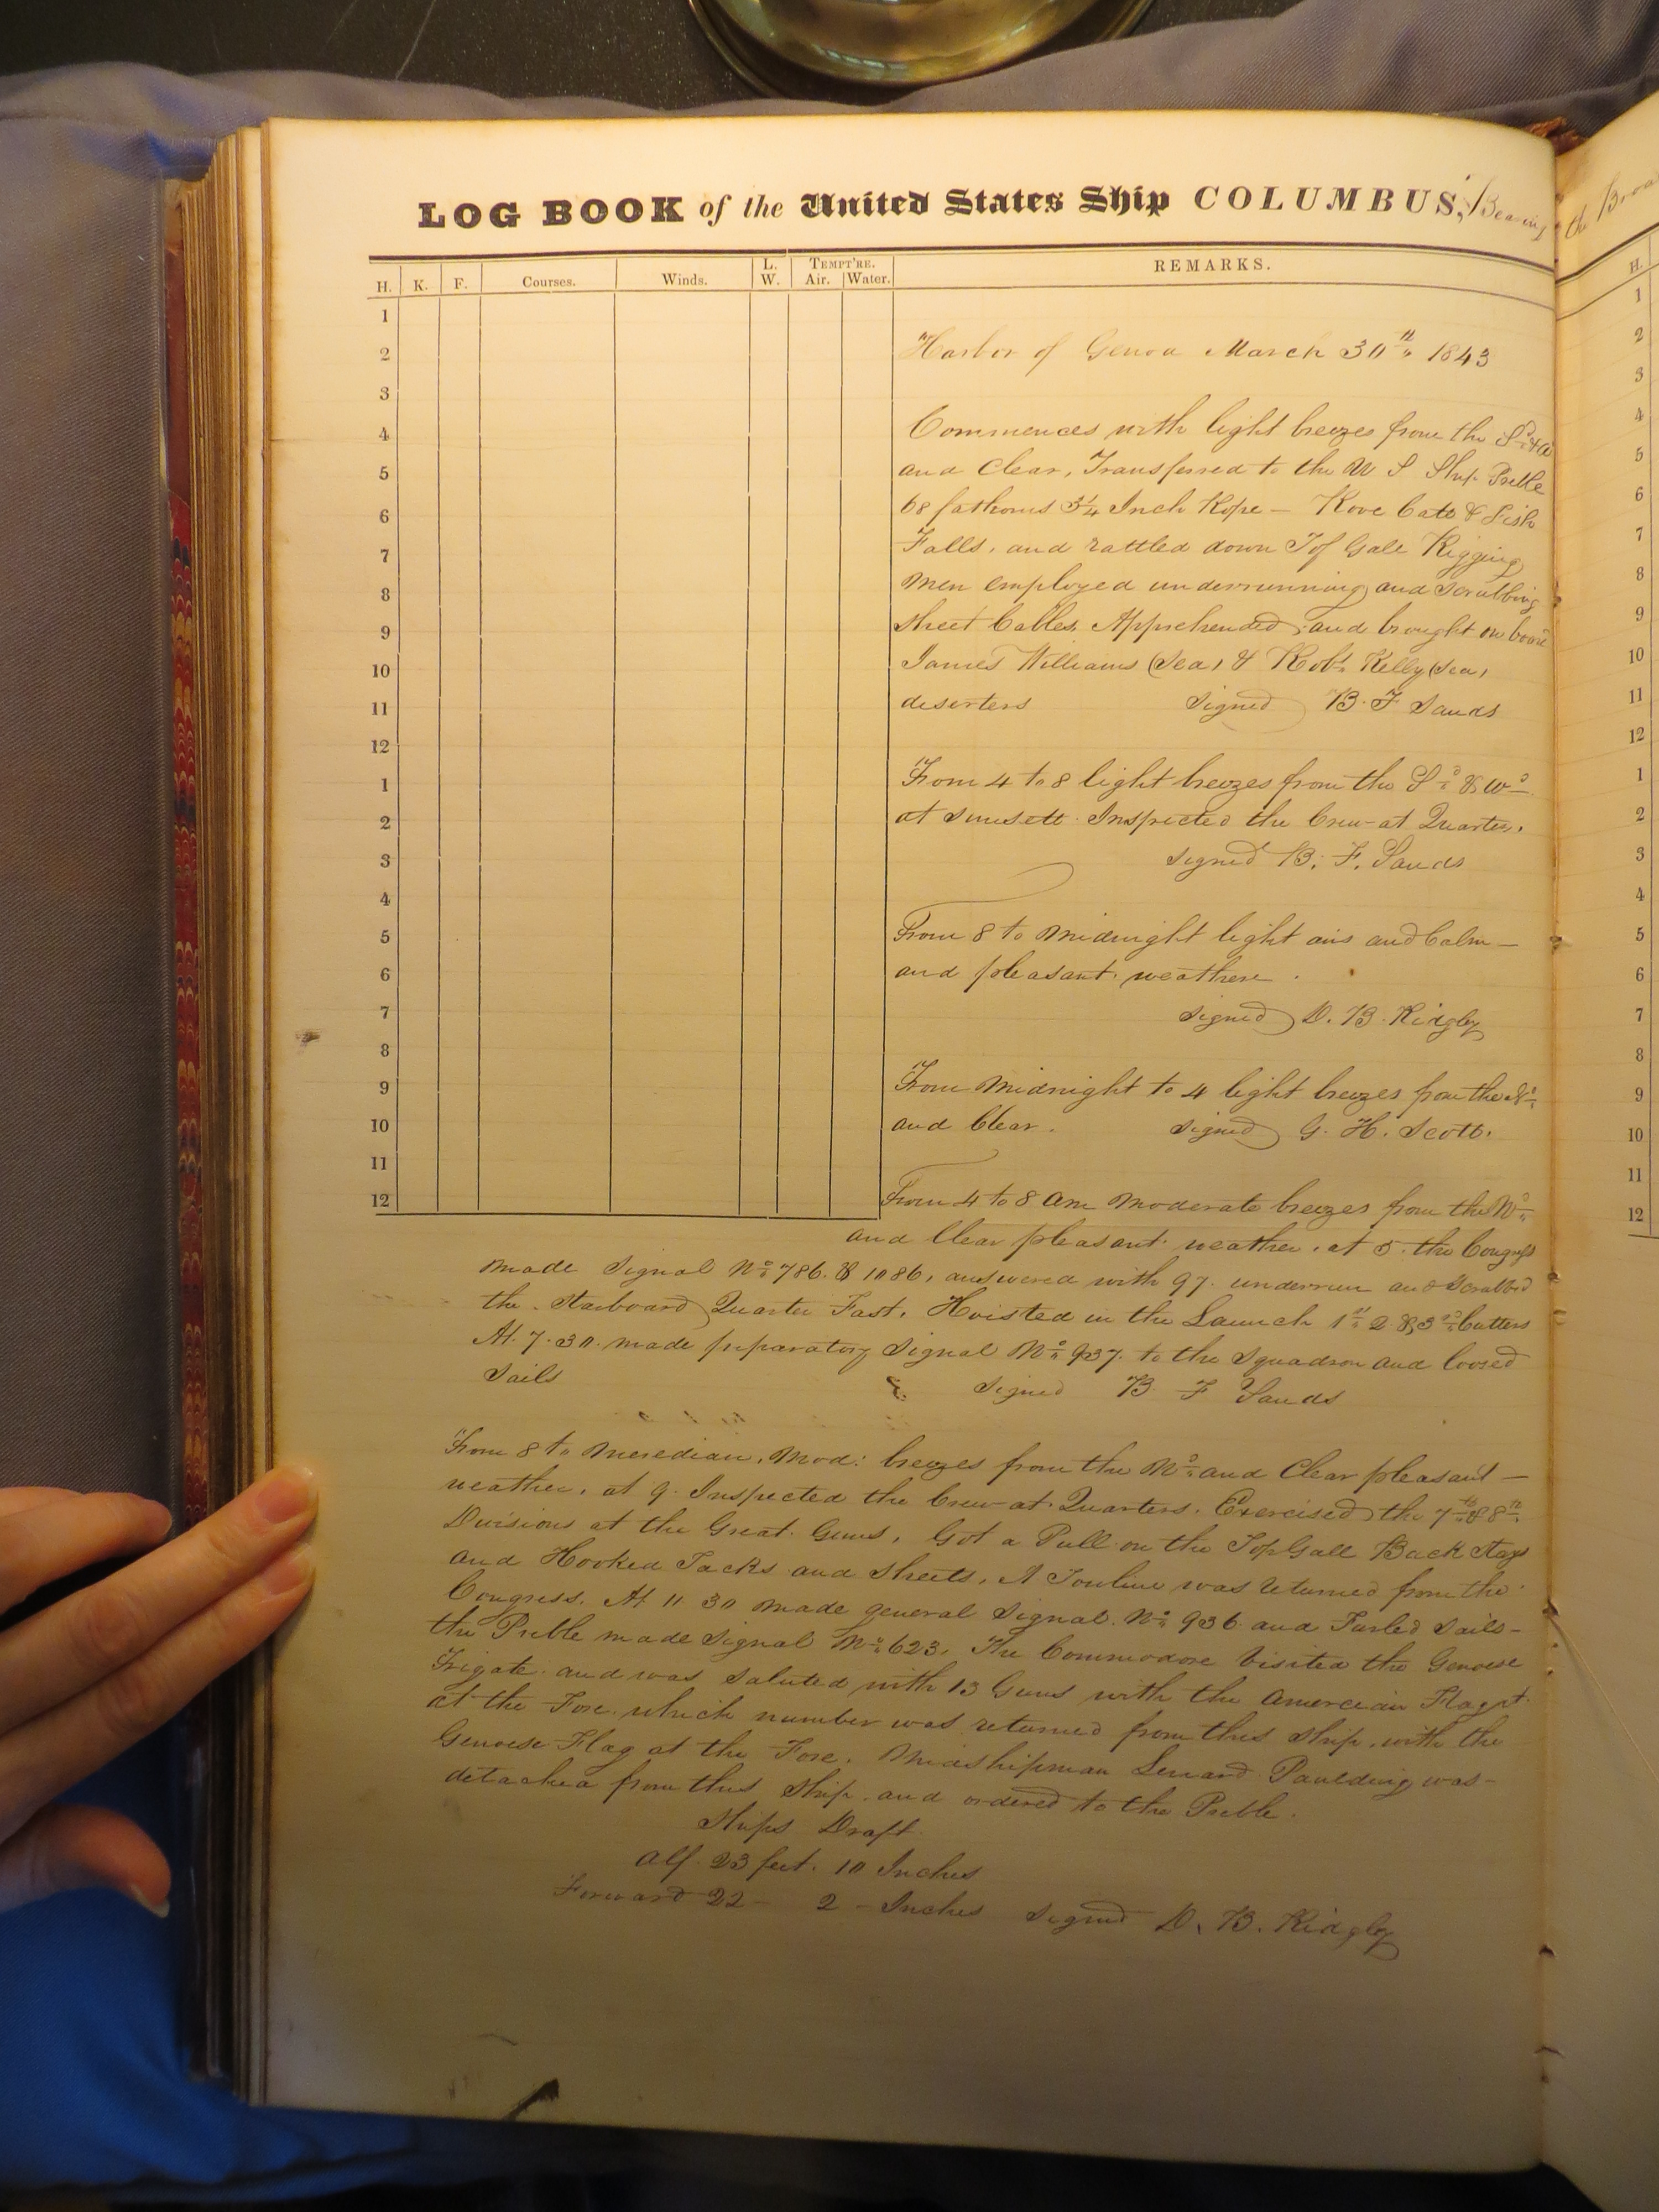 LOG BOOK of the United States Ship COLUMBUS, Bearing
the Broa
H. K. F. Courses. Winds. L. W. TEMPT'RE. Air. Water. REMARKS.
H.
1
2 Harbor of Genoa March 30th 1843
3
4 Commences with light breezes from the Sd & W
5 and Clear, Transferred to the U S Ship Preble
6 68 fathoms 3 1/4 Inch Rope – Rove Catt & Fish
7 Falls, and rattled down Top Gall Rigging
8 men employed underrunning and scrubbing
9 sheet Cables, Apprehended and brought on board
10 James Williams (Sea) & Robt. Kelly (Sea)
11 deserters signed B. F Sands
12
1 From 4 to 8 light breezes from the Sd & Wd
2 at sunsett Inspected the Crew at Quarters.
3 signed B. F. Sands
4
5 From 8 to Midnight light airs and Calm –
6 and pleasant weathere.
7 signed D. B. Ridgley
8
9 From Midnight to 4 light breezes from the Nd
10 and Clear. signed G. H. Scott.
11
12 From 4 to 8 am Moderate breezes from the Nd
and Clear pleasant weather. at 5. the Congress
made Signal No 786. & 1086, answered with 97. underrun and Scrubbed
the Starboard Quarter Fast. Hoisted in the Launch 1st 2 & 3rd Cutters
At 7.30. made preparatory signal No 937. to the Squadron and loosed
Sails signed B F Sands
From 8 to Meredian, Mod: breezes from the Nd and Clear pleasant –
weather. at 9. Inspected the Crew at Quarters. Exercised the 7th & 8th
Divisions at the Great Guns. Got a Pull on the TopGall Back stays
and Hooked Tacks and Sheets. A Towline was returned from the
Congress. At 11 30 made general signal No 936 and Furled Sails –
the Preble made Signal No 623. The Commodore Visited the Genoese
Frigate and was saluted with 13 Guns with the Amercian Flag at
at the Fore which number was returned from this ship. with the
Genoese Flag at the Fore. Midshipman Lenard Paulding was –
detached from this Ship. and ordered to the Preble.
Ships Draft.
Aft 23 feet. 10 Inches
Forward 22 – 2 – Inches signed D. B. Ridgley
1
2
3
4
5
6
7
8
9
10
11
12
1
2
3
4
5
6
7
8
9
10
11
12